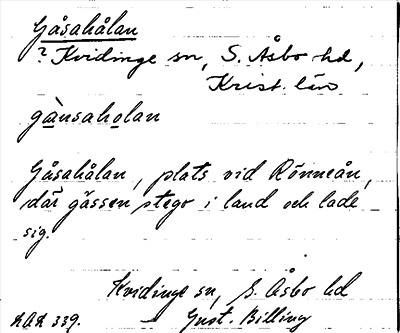 Gåsahålan
? Kvidinge sn, S. Åsbo hd,
Krist. län
gànsaholan
Gåsahålan, plats vid Rönneån,
där gässen stego i land och lade
sig.
Kvidinge sn, S. Åsbo hd
AAA 339. Gust. Billing